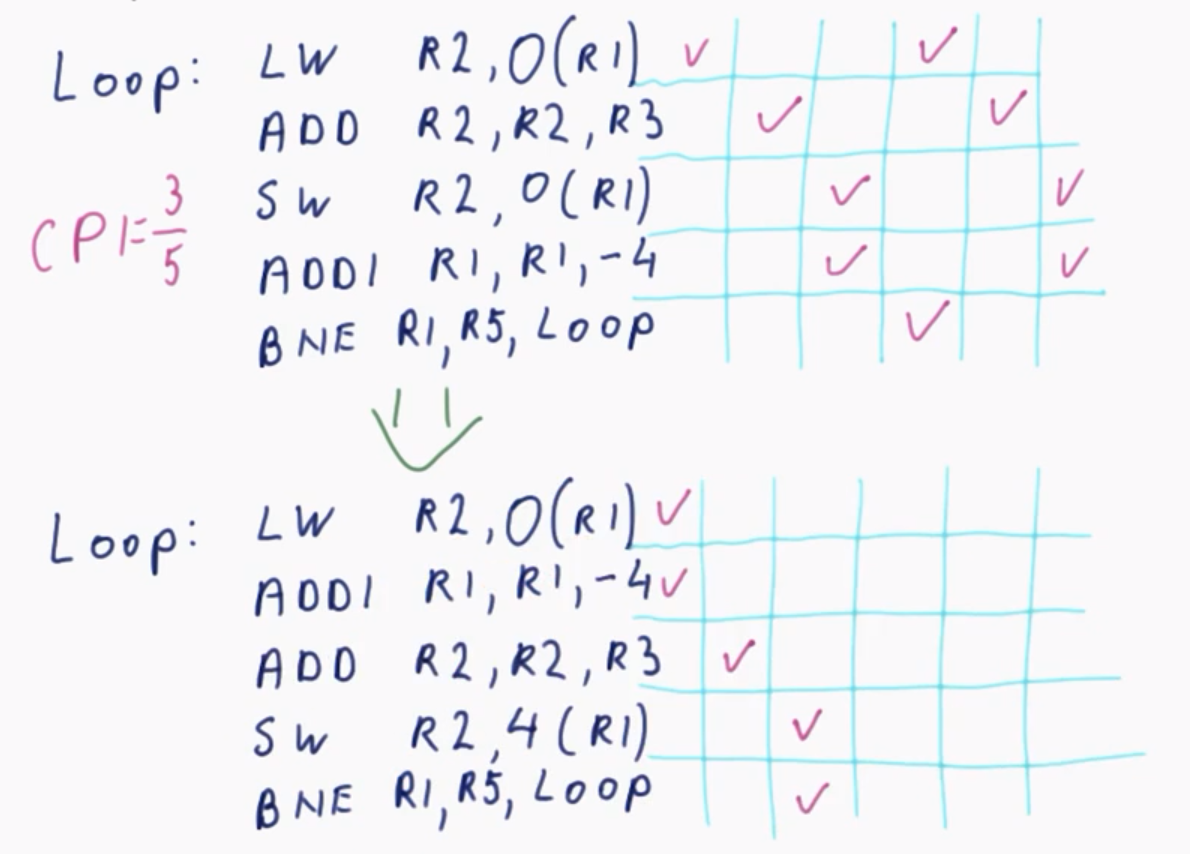 Loop: LW R2,0(R1) ✓ ✓
ADD R2,R2,R3 ✓ ✓
CPI=3/5 SW R2,0(R1) ✓ ✓
ADDI R1,R1,-4 ✓ ✓
BNE R1,R5,Loop ✓
Loop: LW R2,0(R1) ✓
ADDI R1,R1,-4 ✓
ADD R2,R2,R3 ✓
SW R2,4(R1) ✓
BNE R1,R5,Loop ✓